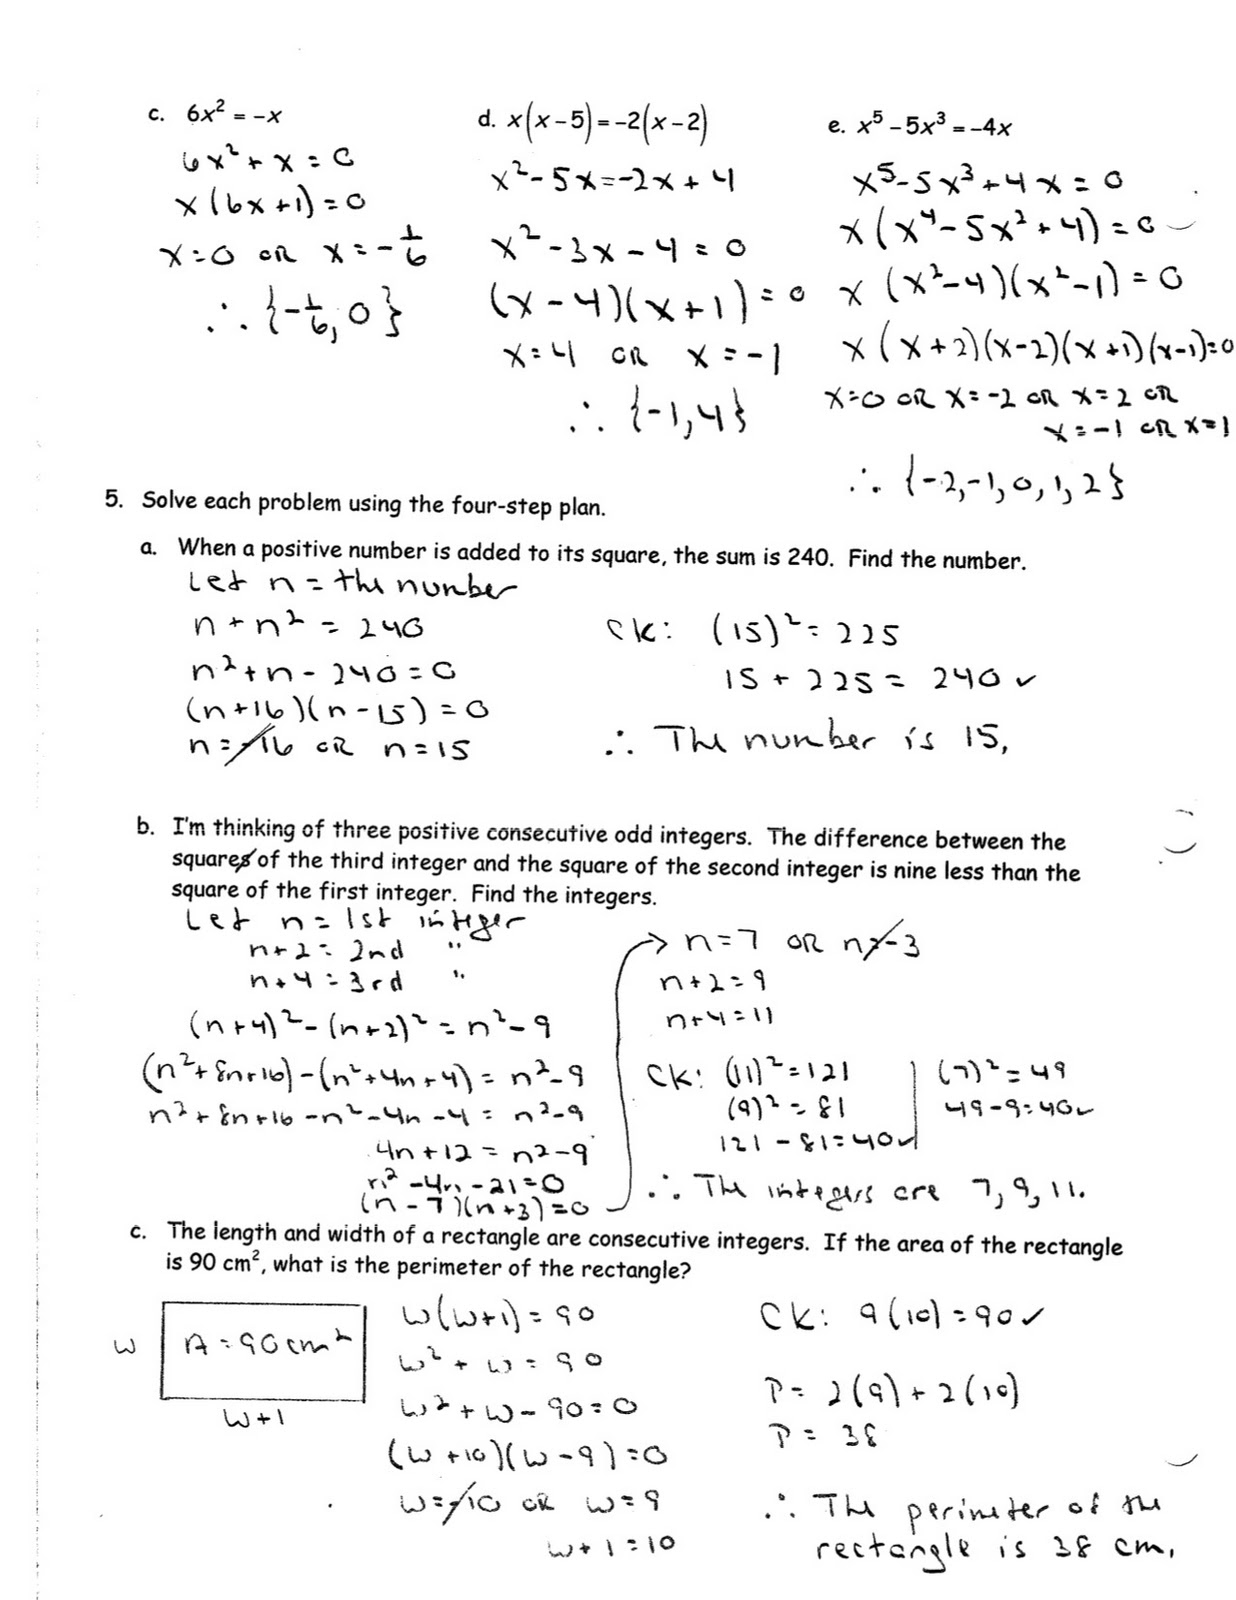 c. 6x² = -x
6x² + x = 0
x(6x+1) = 0
x=0 OR x = -1/6
∴ {-1/6, 0}
d. x(x-5) = -2(x-2)
x² - 5x = -2x + 4
x² - 3x - 4 = 0
(x-4)(x+1) = 0
x=4 OR x=-1
∴ {-1,4}
e. x⁵ - 5x³ = -4x
x⁵ - 5x³ + 4x = 0
x(x⁴ - 5x² + 4) = 0
x(x²-4)(x²-1) = 0
x(x+2)(x-2)(x+1)(x-1)=0
x=0 OR x=-2 OR x=2 OR
x=-1 OR x=1
∴ {-2,-1,0,1,2}
5. Solve each problem using the four-step plan.
a. When a positive number is added to its square, the sum is 240. Find the number.
Let n = the number
n + n² = 240
n² + n - 240 = 0
(n+16)(n-15) = 0
n=-16 OR n=15
CK: (15)² = 225
15 + 225 = 240 ✓
∴ The number is 15.
b. I'm thinking of three positive consecutive odd integers. The difference between the
squares of the third integer and the square of the second integer is nine less than the
square of the first integer. Find the integers.
Let n = 1st integer
n+2 = 2nd "
n+4 = 3rd "
(n+4)² - (n+2)² = n² - 9
(n²+8n+16) - (n²+4n+4) = n²-9
n²+8n+16 -n²-4n-4 = n²-9
4n+12 = n²-9
n²-4n-21=0
(n-7)(n+3)=0
→ n=7 OR n=-3
n+2=9
n+4=11
CK: (11)²=121
(9)² = 81
121 - 81 = 40 ✓
(7)² = 49
49-9=40 ✓
∴ The integers are 7, 9, 11.
c. The length and width of a rectangle are consecutive integers. If the area of the rectangle
is 90 cm², what is the perimeter of the rectangle?
W
A = 90cm²
W+1
W(W+1) = 90
W² + W = 90
W² + W - 90 = 0
(W+10)(W-9) = 0
W=-10 OR W=9
W+1=10
CK: 9(10) = 90 ✓
P = 2(9) + 2(10)
P = 38
∴ The perimeter of the
rectangle is 38 cm.